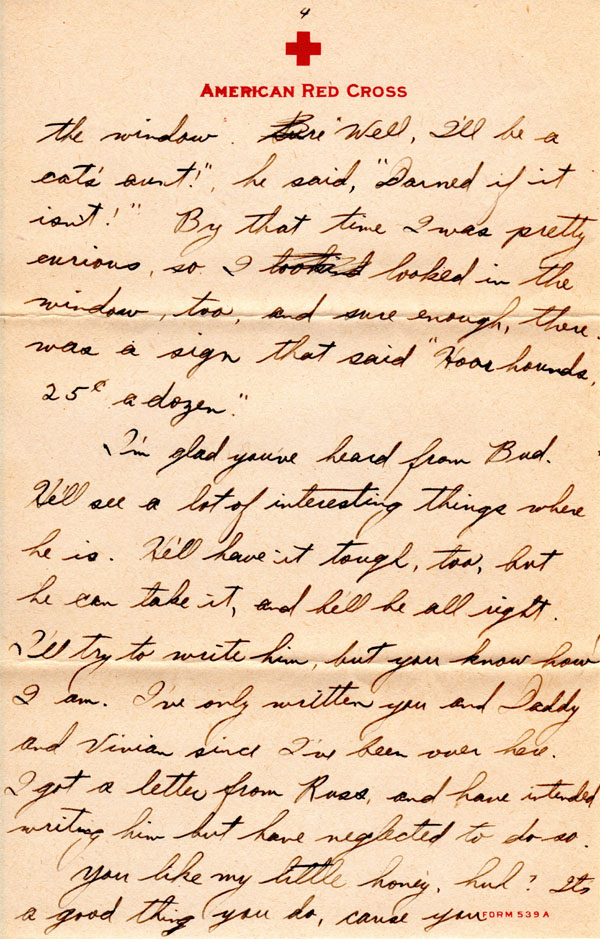 4
AMERICAN RED CROSS
the window. Sure "Well, I'll be a
cat's aunt!", he said, "Darned if it
isn't!" By that time I was pretty
curious, so I looked in the
window, too, and sure enough, there
was a sign that said "Hoarhounds,
25¢ a dozen."
I'm glad you've heard from Bud.
He'll see a lot of interesting things where
he is. He'll have it tough, too, but
he can take it, and he'll be all right.
I'll try to write him, but you know how
I am. I've only written you and Daddy
and Vivian since I've been over here.
I got a letter from Russ, and have intended
writing him but have neglected to do so.
You like my little honey, huh? Its
a good thing you do, cause you
FORM 539A